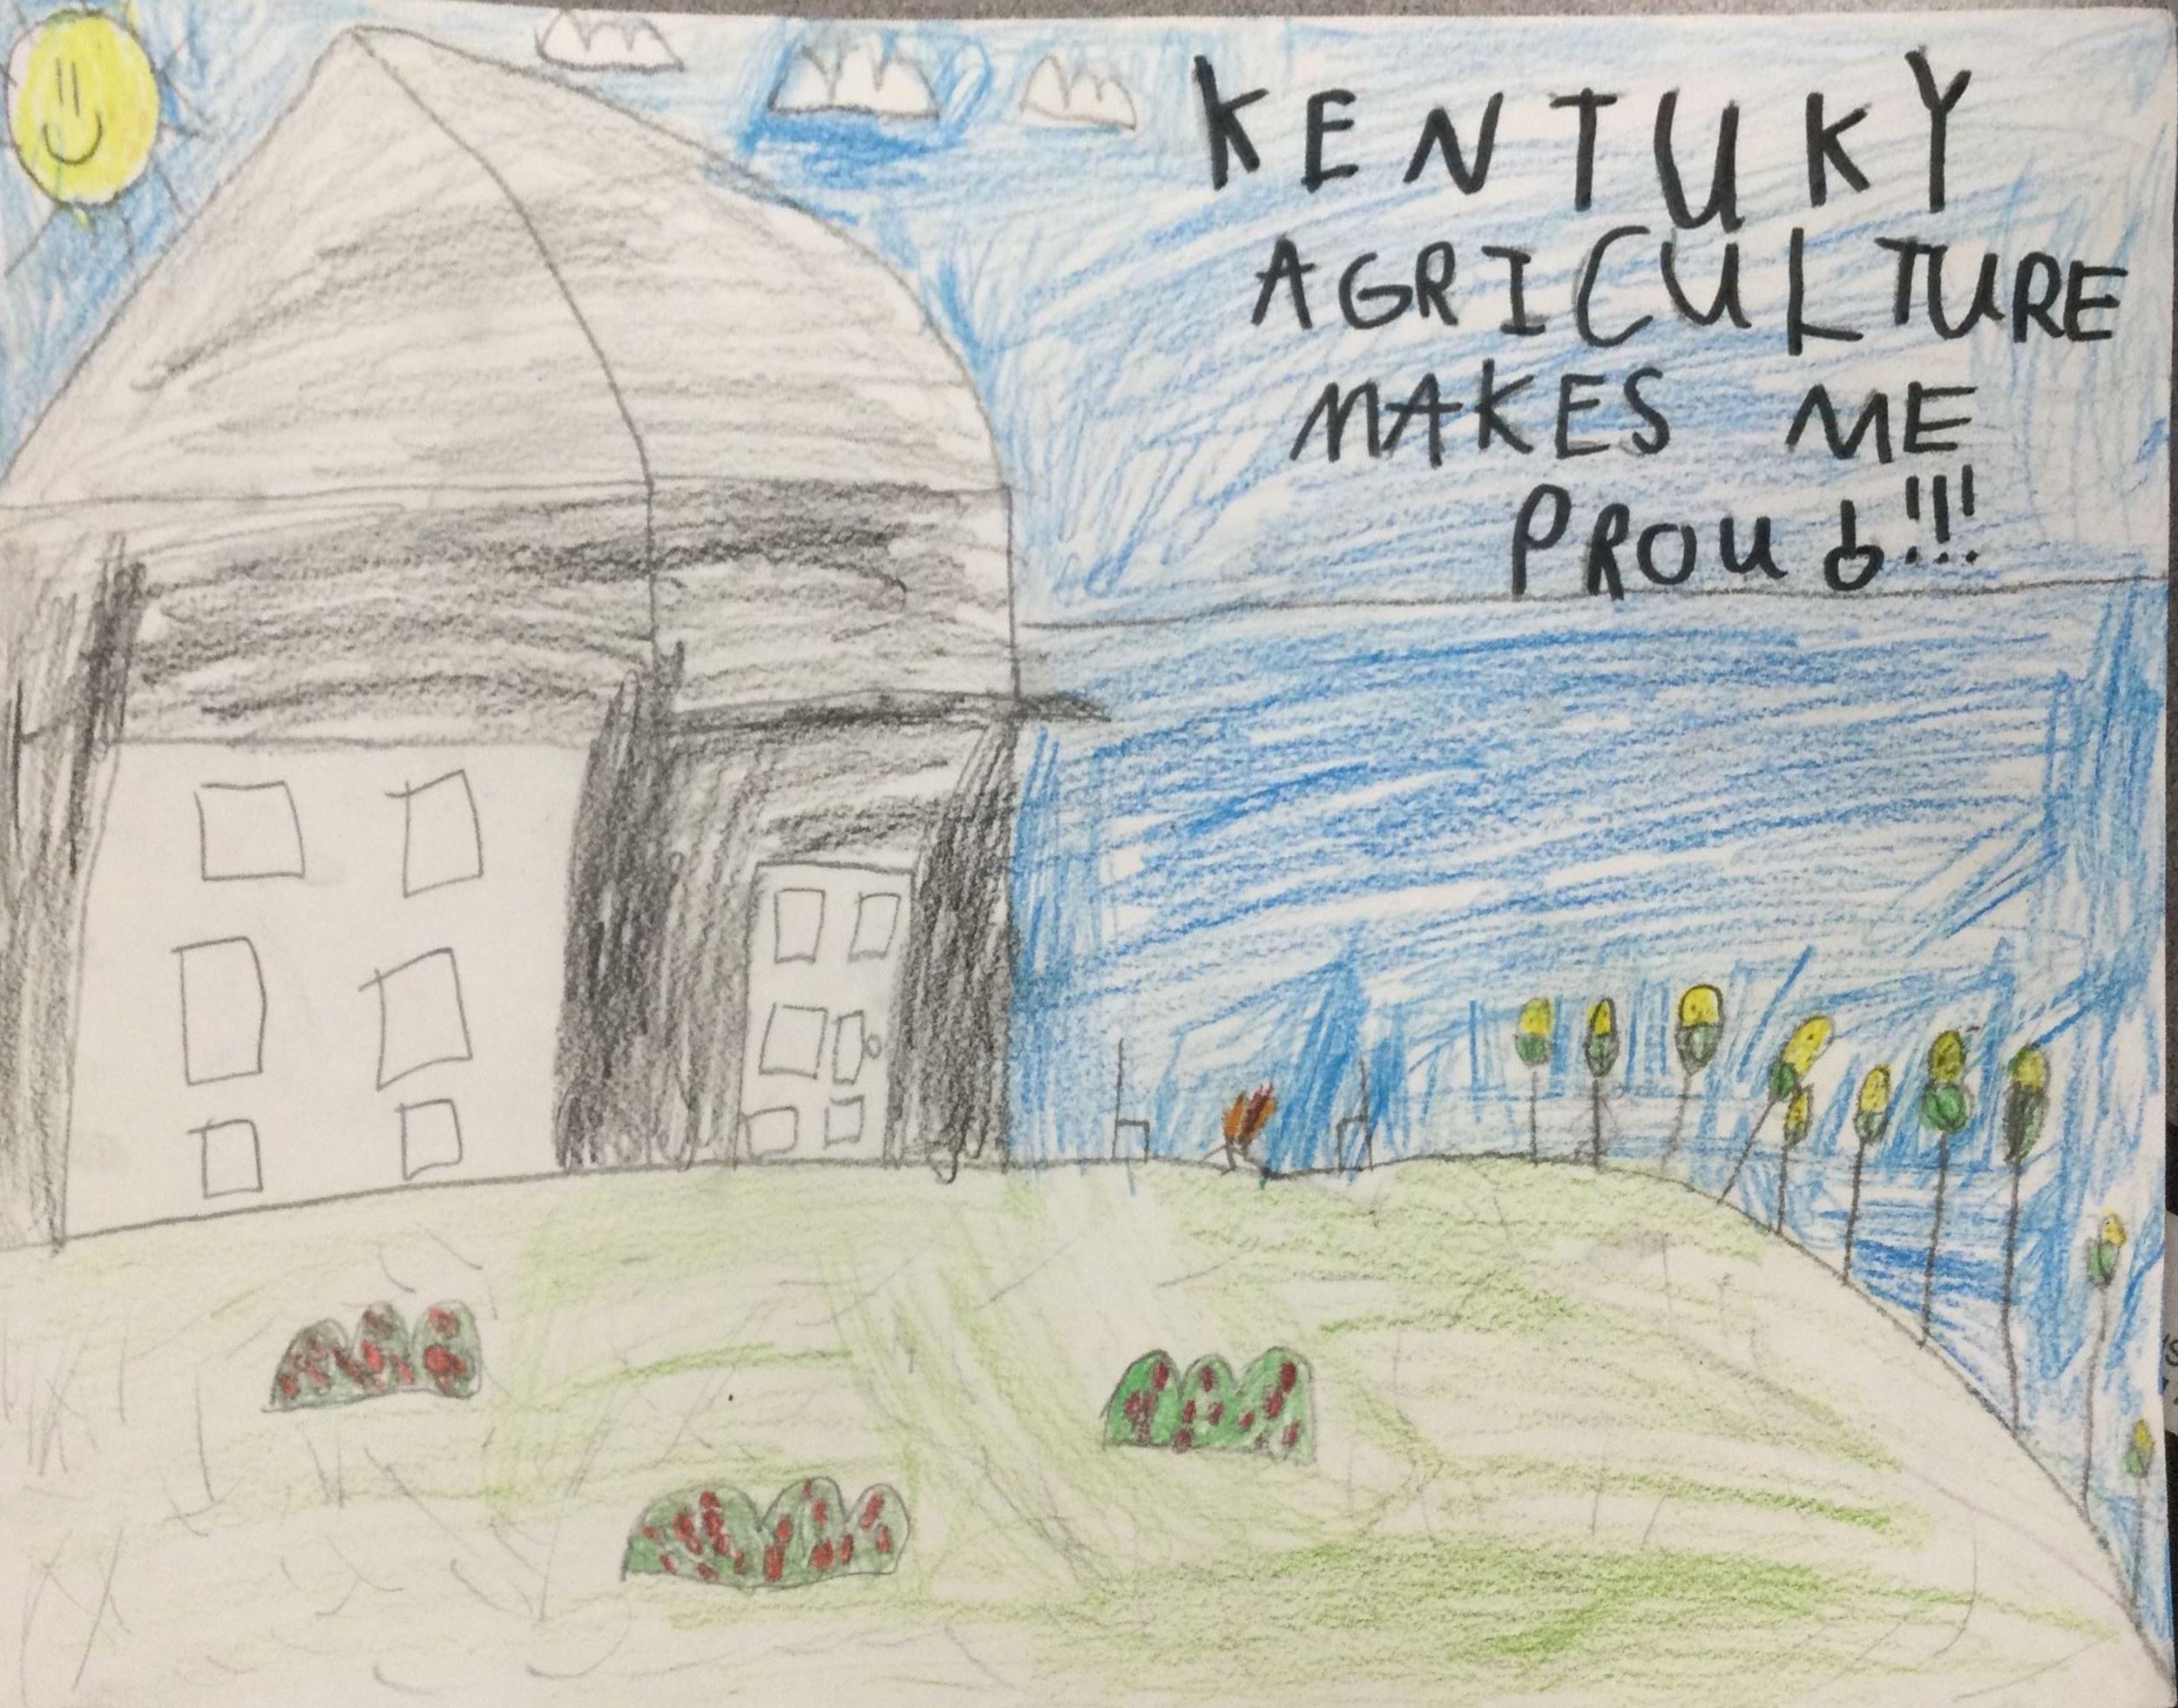 KENTUKY
AGRICULTURE
MAKES ME
PROUD!!!